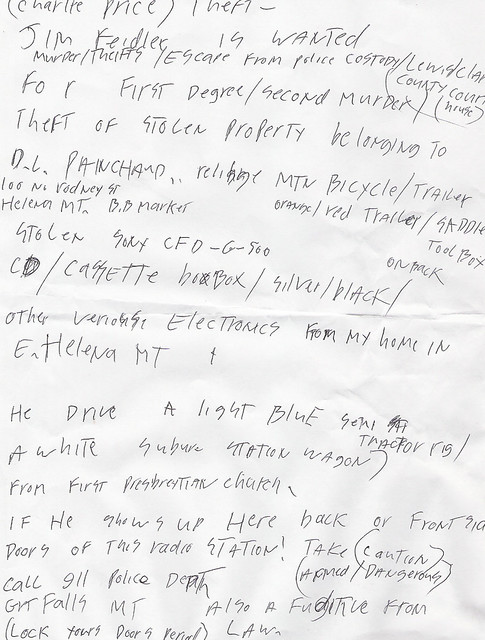 (Charlie Price) Theft -
JIM Keidler IS WANTED
MURDER/Thefts /Escape From police CUSTODY/(Lewis/Clar
COUNTY COURT
house)
For First Degree/Second Murder/
Theft OF STOLEN Property belonging TO
D.L. PAINCHAUD.. MTN BICYCLE/TRAILER
100 No Rodney ST
Helena MT. B.B MARKET
ORANGE/red Trailer/SADDLE
TOOL BOX
ON BACK
STOLEN SONY CFD-G-500
CD/CASSETTE boxBox/silver/black/
other Electronics From my home IN
E. Helena MT
He Drive A light BLUE semi
TRACTOR rig/
A white Subur STATION WAGON)
From First church.
IF He shows up Here back or Front Sid
Doors OF THIS radio STATION! TAKE (CAUTION)
(Armed/Dangerous)
call 911 Police
GrT Falls MT Also A Fugitive From
(Lock Yours Doors Period) LAW.